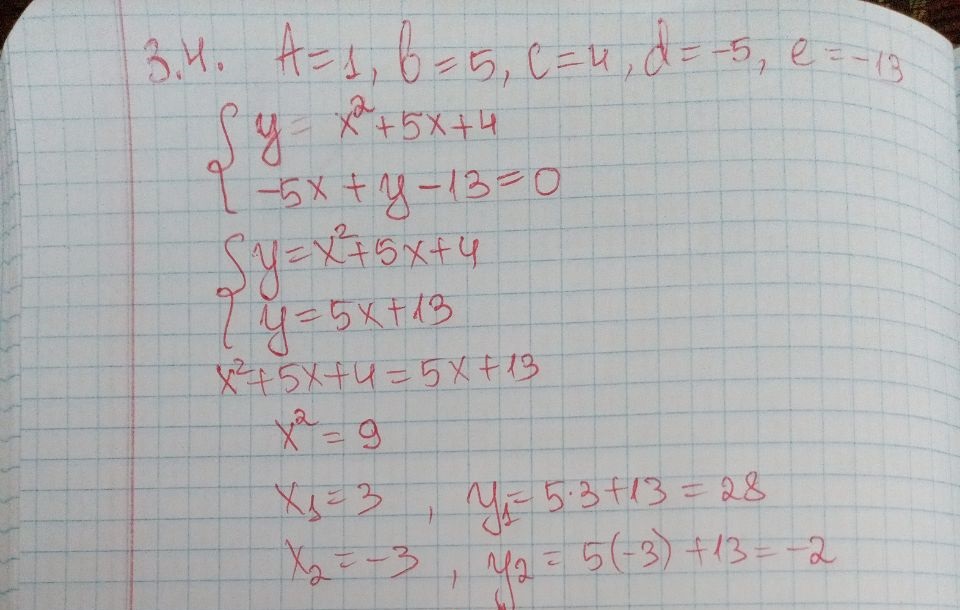 3.4. A=1, b=5, c=4, d=-5, e=-13
{ y= x²+5x+4
-5x+y-13=0
{ y=x²+5x+4
y=5x+13
x²+5x+4=5x+13
x²=9
x₁=3 , y₁=5·3+13=28
x₂=-3 , y₂=5(-3)+13=-2